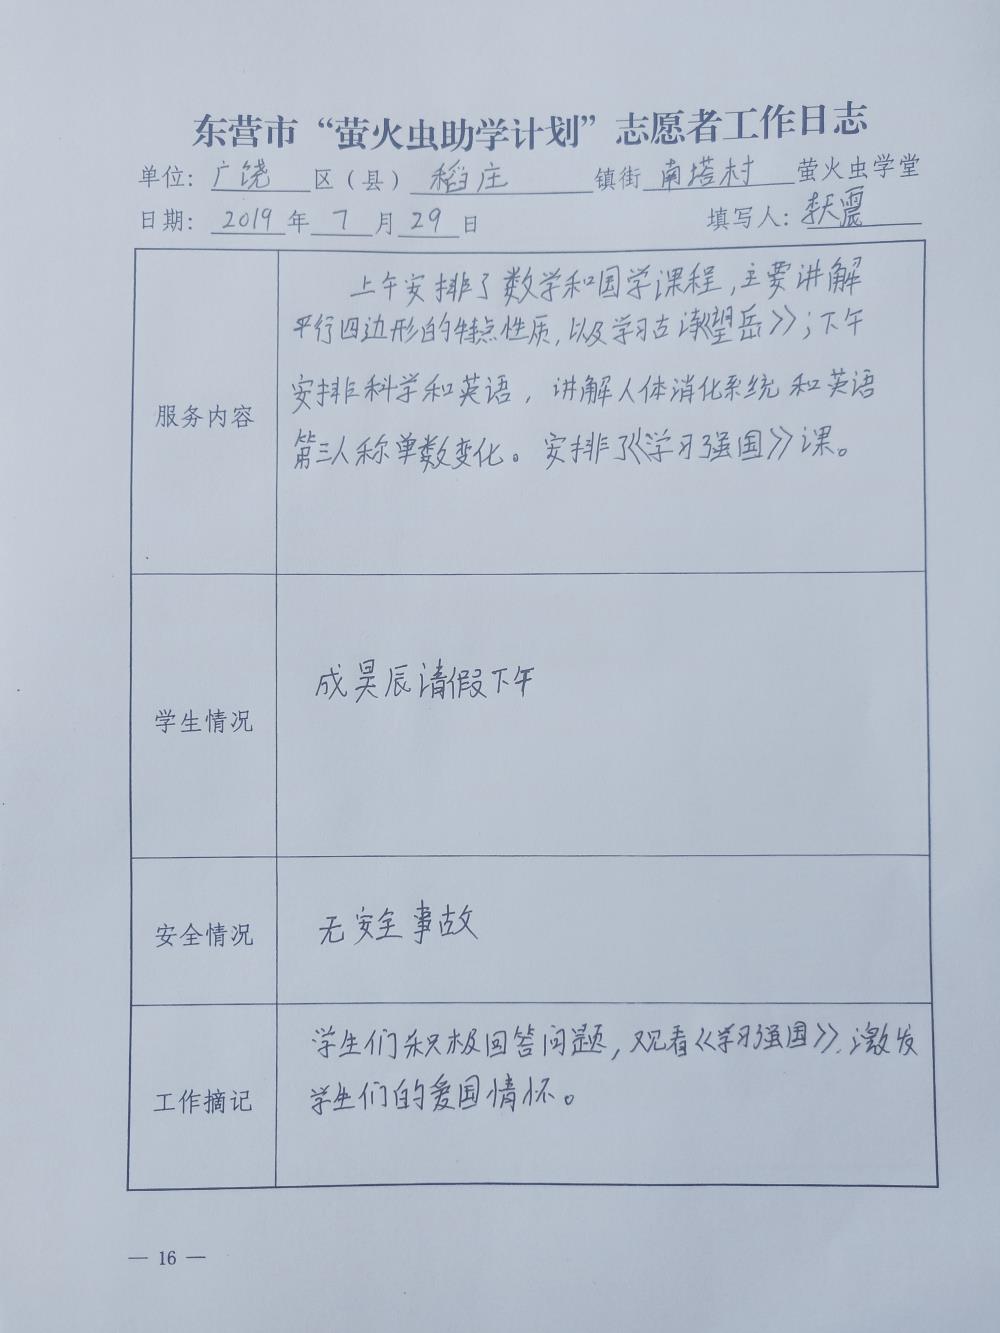 东营市“萤火虫助学计划”志愿者工作日志
单位：广饶区（县）稻庄镇街南塔村萤火虫学堂
日期：2019年7月29日 填写人：李天震
上午安排了数学和国学课程，主要讲解
平行四边形的特点性质，以及学习古诗《望岳》；下午
服务内容 安排科学和英语，讲解人体消化系统和英语
第三人称单数变化。安排了《学习强国》课。
成昊辰请假下午
学生情况
安全情况 无安全事故
学生们积极回答问题，观看《学习强国》，激发
工作摘记 学生们的爱国情怀。
— 16 —